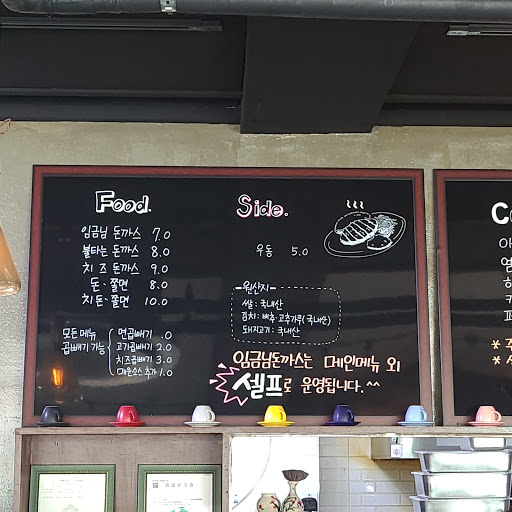 Food.
임금님 돈까스 7.0
불타는 돈까스 8.0
치즈 돈까스 9.0
돈·쫄면 8.0
치돈·쫄면 10.0
모든 메뉴
곱빼기 가능
면곱빼기 .0
고기곱빼기 2.0
치즈곱빼기 3.0
매운소스 추가 1.0
Side.
우동 5.0
원산지
쌀 : 국내산
김치 : 배추·고추가루(국내산)
돼지고기 : 국내산
임금님돈까스는 메인메뉴 외
셀프로 운영됩니다.^^